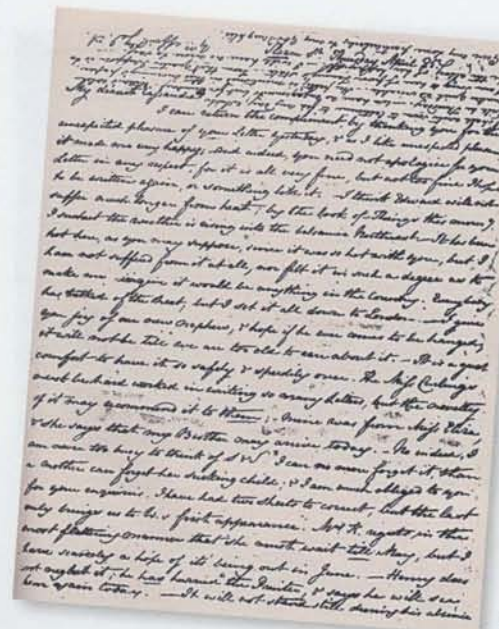 Sloane St Thursday April 25
My dearest Cassandra
I can return the compliment by thanking you for the
unexpected pleasure of your Letter yesterday, & as I like unexpected pleasure,
it made me very happy; And indeed, you need not apologise for your
Letter in any respect, for it is all very fine, but not too fine I hope
to be written again, or something like it. I think Edward will not
suffer much longer from heat; by the look of Things this morng
I suspect the weather is rising into the balsamic Northeast. It has been
hot here, as you may suppose, since it was so hot with you, but I
have not suffered from it at all, nor felt it in such a degree as to
make me imagine it would be anything in the Country. Everybody
has talked of the heat, but I set it all down to London. — I give
you joy of our new nephew, & hope if he ever comes to be hanged,
it will not be till we are too old to care about it. — It is a great
comfort to have it so safely & speedily over. The Miss Curlings
must be hard worked in writing so many Letters, but the novelty
of it may recommend it to them; — Mine was from Miss Eliza,
& she says that my Brother may arrive today. — No indeed, I
am never too busy to think of S&S. I can no more forget it, than
a mother can forget her sucking child; & I am much obliged to you
for your enquiries. I have had two sheets to correct, but the last
only brings us to first appearance. Mrs K. regrets in the
most flattering manner that she must wait till May, but I
have scarcely a hope of its being out in June. — Henry does
not neglect it; he has hurried the Printer, & says he will see
him again today. — It will not stand still during his absence